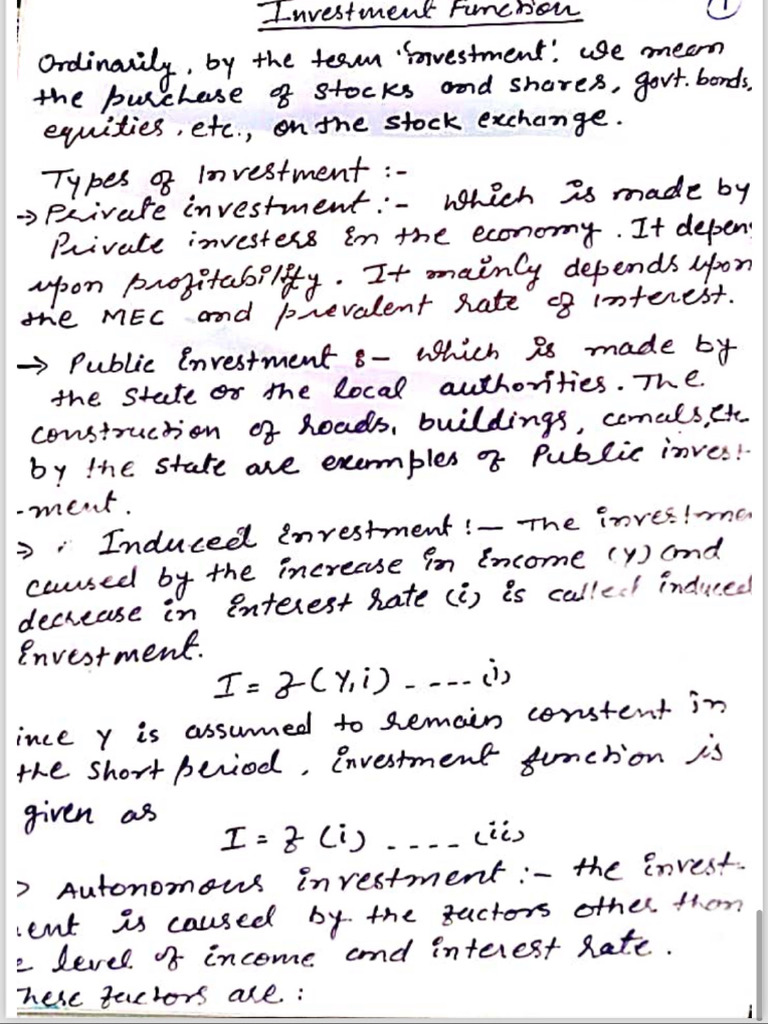 Investment Function
1
Ordinarily, by the term 'investment'. we mean
the purchase of stocks and shares, govt. bonds,
equities, etc., on the stock exchange.
Types of Investment :-
→ Private investment :- which is made by
Private investers in the economy. It depen
upon profitability. It mainly depends upon
the MEC and prevalent rate of interest.
→ Public Investment :- which is made by
the State or the local authorities. The
construction of roads, buildings, camals, etc
by the State are examples of Public invest-
-ment.
⇒ Induced Investment :- The investme
caused by the increase in income (Y) and
decrease in interest rate (i) is called induced
investment.
I = f (Y, i) ----- (i)
ince Y is assumed to remain constent in
the Short period, investment function is
given as
I = f (i) ---- (ii)
> Autonomous investment :- the invest-
ent is caused by the factors other than
e level of income and interest rate.
hese factors are :